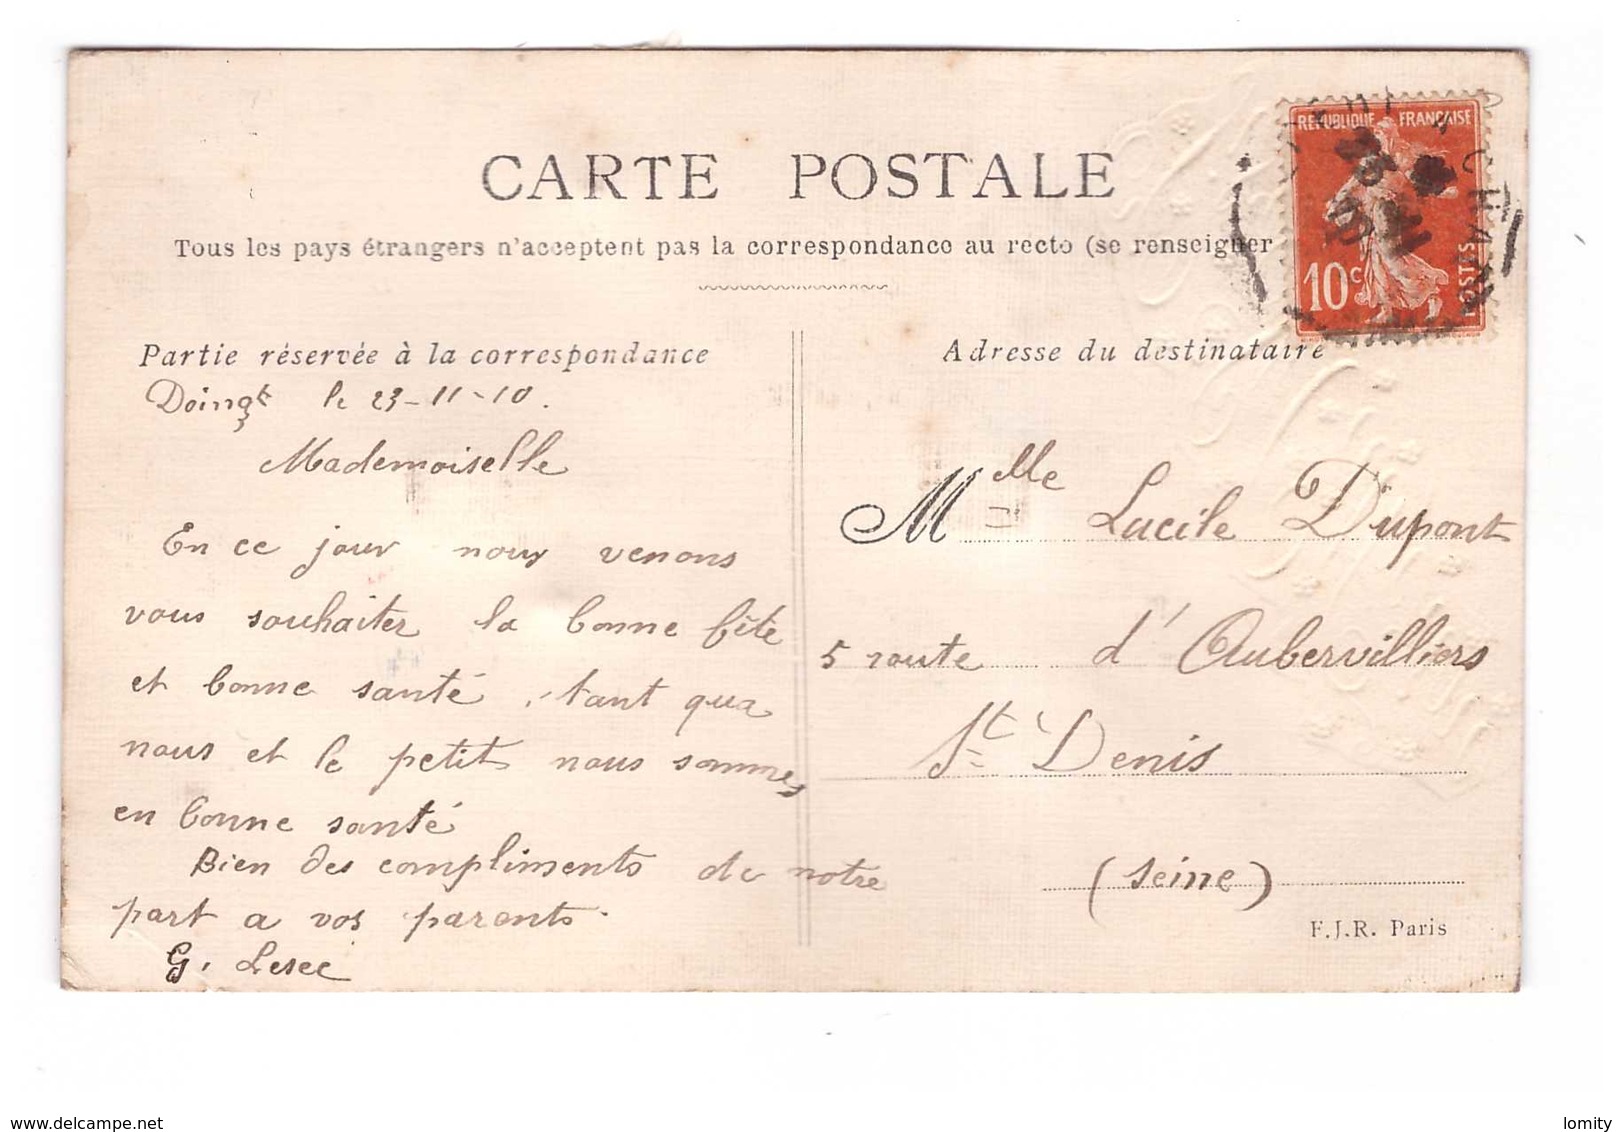 CARTE POSTALE
Tous les pays étrangers n'acceptent pas la correspondance au recto (se renseigner
REPUBLIQUE FRANÇAISE
10c
POSTES
Partie réservée à la correspondance
Doingt le 23-11-10.
Mademoiselle
En ce jour nous venons
vous souhaiter la bonne fête
et bonne santé, tant qua
nous et le petit nous sommes
en bonne santé
Bien des compliments de notre
part a vos parents.
G. Lesec
Adresse du destinataire
Melle Lucile Dupont
5 route d'Aubervilliers
St Denis
(Seine)
F.J.R. Paris
www.delcampe.net
lomity